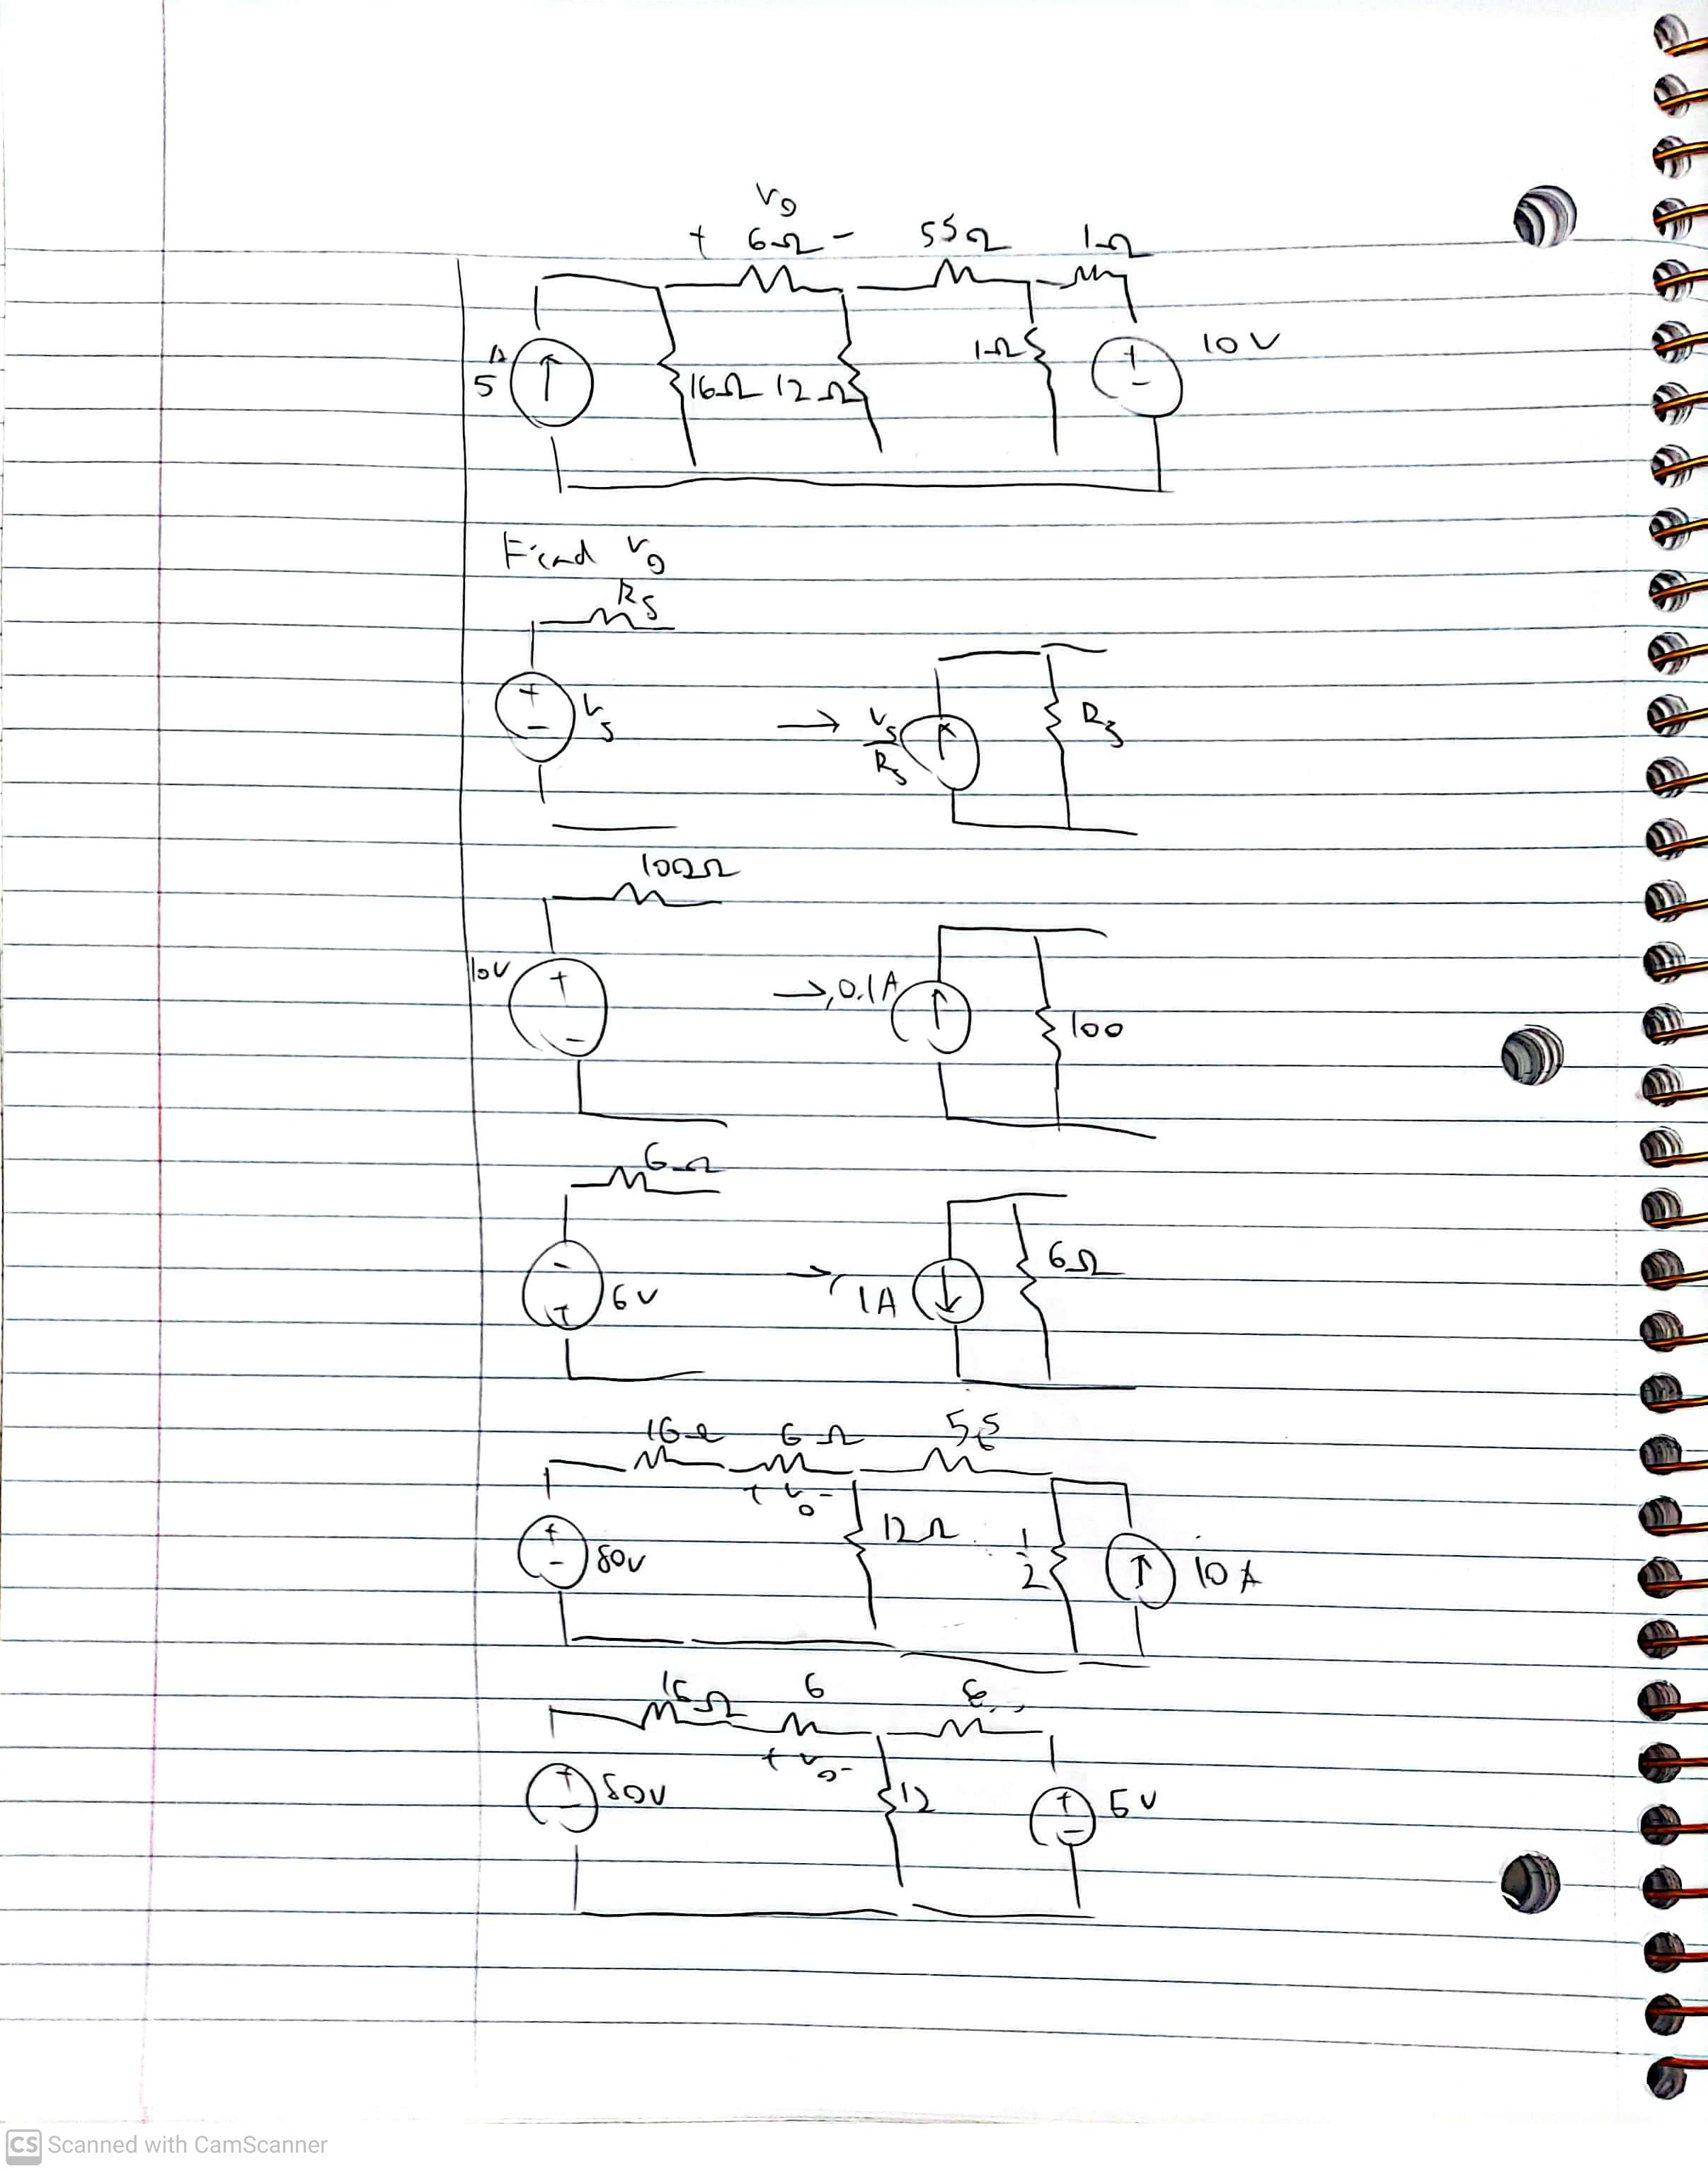 V0
+ 6Ω - 55Ω 1Ω
A
5 16Ω 12Ω 1Ω + - 10V
Find V0
Rs
+ - Vs → Vs/Rs Rs
100Ω
10V + - → 0.1A 100
6Ω
- + 6V → 1A 6Ω
16Ω 6Ω
+ V0 -
+ - 80V 12Ω 1/2 10A
16Ω 6
+ V0 -
+ - 80V 12 + - 5V
CS Scanned with CamScanner